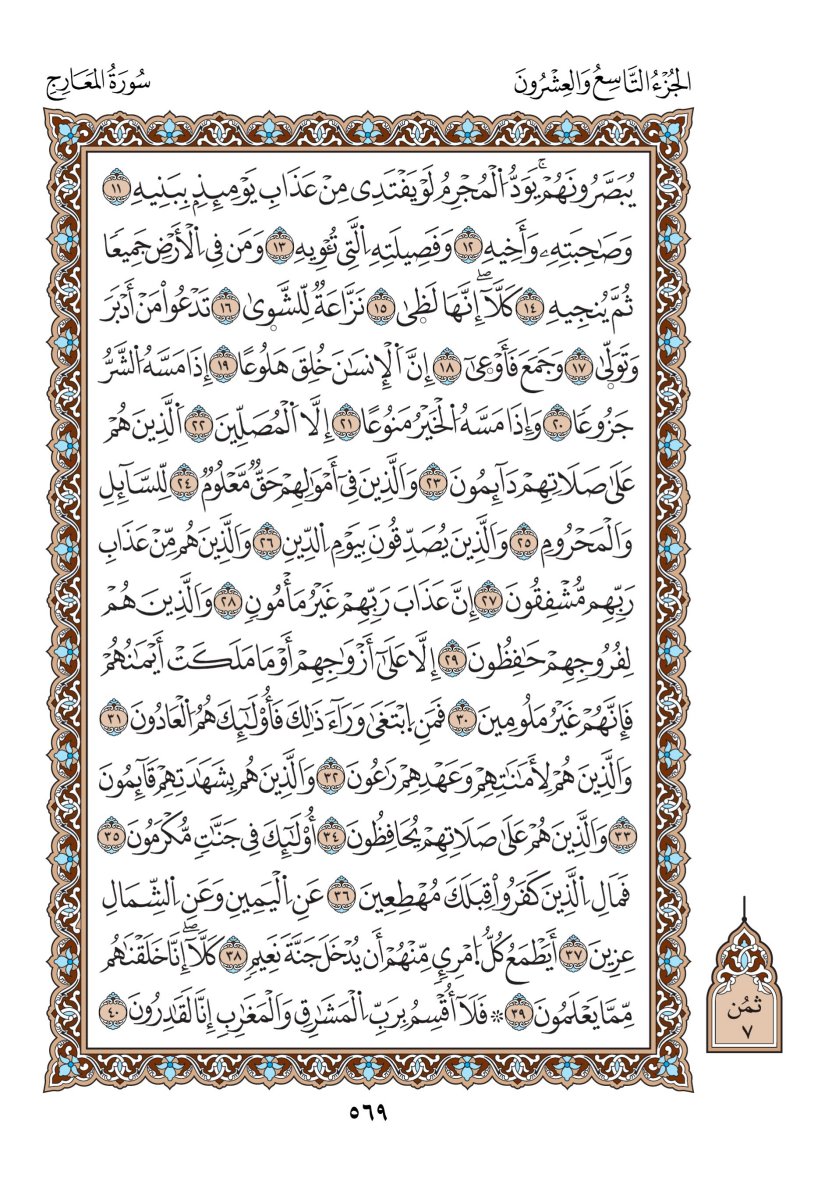 الجُزْءُ التَّاسِعُ وَالعِشْرُونَ
سُورَةُ المَعَارِجِ
يُبَصَّرُونَهُمْۚ يَوَدُّ اُ۬لْمُجْرِمُ لَوْ يَفْتَدِى مِنْ عَذَابِ يَوْمِئِذِۢ بِبَنِيهِ ١١
وَصَٰحِبَتِهِۦ وَأَخِيهِ ١٢ وَفَصِيلَتِهِ اِ۬لَّتِى تُـْٔوِيهِ ١٣ وَمَن فِى اِ۬لْأَرْضِ جَمِيعٗا
ثُمَّ يُنجِيهِ ١٤ كَلَّآۖ إِنَّهَا لَظٜىٰ ١٥ نَزَّاعَةٞ لِّلشَّوٜىٰ ١٦ تَدْعُواْ مَنْ أَدْبَرَ
وَتَوَلّٜىٰ ١٧ وَجَمَعَ فَأَوْعٜىٰٓ ١٨ إِنَّ اَ۬لْإِنسَٰنَ خُلِقَ هَلُوعًا ١٩ إِذَا مَسَّهُ اُ۬لشَّرُّ
جَزُوعٗا ٢٠ وَإِذَا مَسَّهُ اُ۬لْخَيْرُ مَنُوعًا ٢١ إِلَّا اَ۬لْمُصَلِّينَ ٢٢ اَ۬لَّذِينَ هُمْ
عَلَىٰ صَلَاتِهِمْ دَآئِمُونَ ٢٣ وَالَّذِينَ فِىٓ أَمْوَٰلِهِمْ حَقّٞ مَّعْلُومٞ ٢٤ لِّلسَّآئِلِ
وَالْمَحْرُومِ ٢٥ وَالَّذِينَ يُصَدِّقُونَ بِيَوْمِ اِ۬لدِّينِ ٢٦ وَالَّذِينَ هُم مِّنْ عَذَابِ
رَبِّهِم مُّشْفِقُونَ ٢٧ إِنَّ عَذَابَ رَبِّهِمْ غَيْرُ مَأْمُونٖ ٢٨ وَالَّذِينَ هُمْ
لِفُرُوجِهِمْ حَٰفِظُونَ ٢٩ إِلَّا عَلَىٰٓ أَزْوَٰجِهِمْ أَوْ مَا مَلَكَتْ أَيْمَٰنُهُمْ
فَإِنَّهُمْ غَيْرُ مَلُومِينَ ٣٠ فَمَنِ اِ۪بْتَغَىٰ وَرَآءَ ذَٰلِكَ فَأُوْلَٰٓئِكَ هُمُ اُ۬لْعَادُونَ ٣١
وَالَّذِينَ هُمْ لِأَمَٰنَٰتِهِمْ وَعَهْدِهِمْ رَٰعُونَ ٣٢ وَالَّذِينَ هُم بِشَهَٰدَتِهِمْ قَآئِمُونَ
٣٣ وَالَّذِينَ هُمْ عَلَىٰ صَلَاتِهِمْ يُحَافِظُونَ ٣٤ أُوْلَٰٓئِكَ فِى جَنَّٰتٖ مُّكْرَمُونَ ٣٥
فَمَالِ اِ۬لَّذِينَ كَفَرُواْ قِبَلَكَ مُهْطِعِينَ ٣٦ عَنِ اِ۬لْيَمِينِ وَعَنِ اِ۬لشِّمَالِ
عِزِينَ ٣٧ أَيَطْمَعُ كُلُّ اُ۪مْرِيٕٖ مِّنْهُمْ أَن يُدْخَلَ جَنَّةَ نَعِيمٖ ٣٨ كَلَّآۖ إِنَّا خَلَقْنَٰهُم
مِّمَّا يَعْلَمُونَ ٣٩ * فَلَآ أُقْسِمُ بِرَبِّ اِ۬لْمَشَٰرِقِ وَالْمَغَٰرِبِ إِنَّا لَقَٰدِرُونَ ٤٠
ثُمُن
٧
٥٦٩